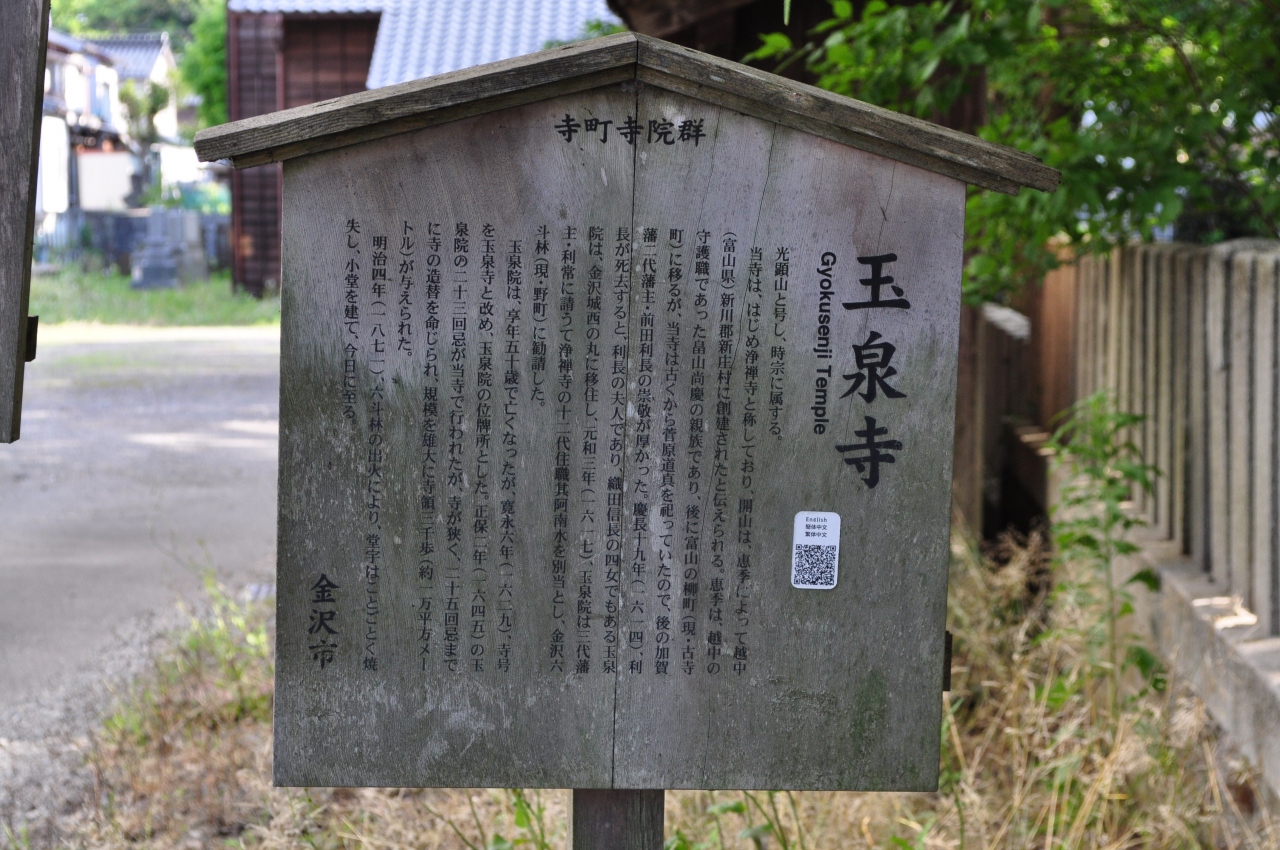 寺町寺院群
玉泉寺
Gyokusenji Temple
光顕山と号し、時宗に属する。
当寺は、はじめ浄禅寺と称しており、開山は、恵季によって越中
(富山県)新川郡新庄村に創建されたと伝えられる。恵季は、越中の
守護職であった畠山尚慶の親族であり、後に富山の柳町(現・古寺
町)に移るが、当寺は古くから菅原道真を祀っていたので、後の加賀
藩二代藩主・前田利長の崇敬が厚かった。慶長十九年(一六一四)、利
長が死去すると、利長の夫人であり、織田信長の四女でもある玉泉
院は、金沢城西の丸に移住し、元和三年(一六一七)、玉泉院は三代藩
主・利常に請うて浄禅寺の十二代住職其阿南水を別当とし、金沢六
斗林(現・野町)に勧請した。
玉泉院は、享年五十歳で亡くなったが、寛永六年(一六二九)、寺号
を玉泉寺と改め、玉泉院の位牌所とした。正保二年(一六四五)の玉
泉院の二十三回忌が当寺で行われたが、寺が狭く、二十五回忌まで
に寺の造替を命じられ、規模を雄大に寺領三千歩(約一万平方メー
トル)が与えられた。
明治四年(一八七一)、六斗林の出火により、堂宇はことごとく焼
失し、小堂を建て、今日に至る。
金沢市
English
簡体中文
繁体中文